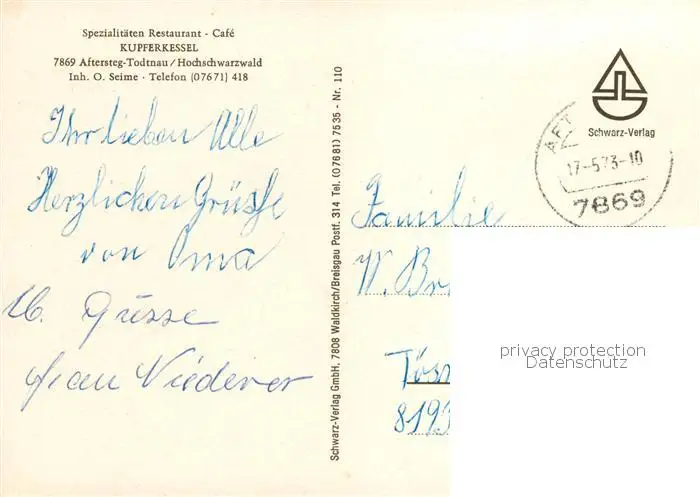 Spezialitäten Restaurant - Café
KUPFERKESSEL
7869 Aftersteg-Todtnau / Hochschwarzwald
Inh. O. Seime · Telefon (07671) 418
Ihr lieben Alle
Herzlichen Grüsse
von Oma
lb. Grüsse
Frau Niederer
Schwarz-Verlag GmbH, 7808 Waldkirch/Breisgau Postf. 314 Tel. (0 76 81) 75 35 - Nr. 110
Schwarz-Verlag
AFT
17-5.73-10
7869
Familie
W. Br
Töss
8193
privacy protection
Datenschutz